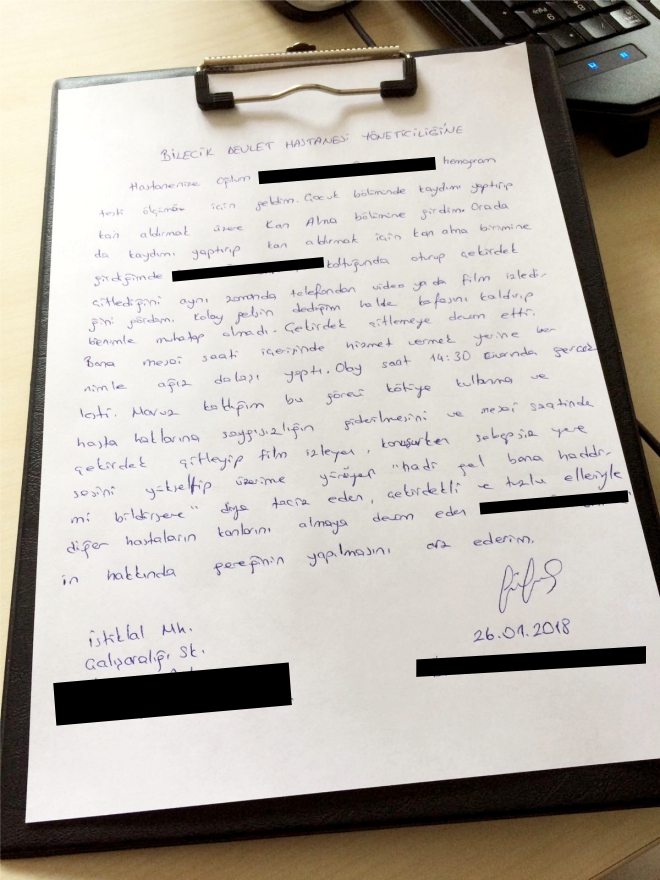 BİLECİK DEVLET HASTANESİ YÖNETİCİLİĞİNE
Hastanenize oğlum hemogram
testi ölçümü için geldim. Çocuk bölümünde kaydımı yaptırıp
kan aldırmak üzere Kan Alma bölümüne girdim. Orada
da kaydımı yaptırıp kan aldırmak için kan alma birimine
girdiğimde koltuğunda oturup çekirdek
çitlediğini aynı zamanda telefondan video ya da film izledi-
ğini gördüm. Kolay gelsin dediğim halde kafasını kaldırıp
benimle muhatap olmadı. Çekirdek çitlemeye devam etti.
Bana mesai saati içerisinde hizmet vermek yerine be-
nimle ağız dalaşı yaptı. Olay saat 14:30 civarında gerçek
leşti. Maruz kaldığım bu görevi kötüye kullanma ve
hasta haklarına saygısızlığın giderilmesini ve mesai saatinde
çekirdek çitleyip film izleyen, konuşurken sebepsiz yere
sesini yükseltip üzerime yürüyen "hadi gel bana haddi-
mi bildirsene" diye taciz eden, çekirdekli ve tuzlu elleriyle
diğer hastaların kanlarını almaya devam eden
in hakkında gereğinin yapılmasını arz ederim.
26.01.2018
İstiklal Mh.
Çalışaralığı Sk.